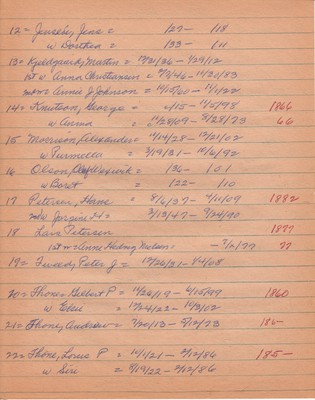 12 = Jensen, Jens = 127 - 118
w Dorthea = 133 - 111
13 = Kjeldgaard, Martin = 12/31/36 - 1/29/12
1st w = Anna Christiansen = 2/7/46 - 11/21/83
m w = Annie J Johnson = 10/5/00 - 11/1/22
14 = Knutson, George = 6/15 - 11/5/98 1866
w Anna = 10/28/09 - 8/28/73 66
15 Morrison, Alexander = 4/14/28 - 12/21/02
w Permelia = 3/19/31 - 10/6/92
16 Olson, = 136 - 101
w Beret = 122 - 110
17 Petersen, Hans = 8/6/37 - 4/11/09 1882
w Jorgine = 3/13/47 - 7/24/90
18 Lars Petersen 1877
1st m = Anne Hedwig Nielsen - 7/2/77 77
19 = Tweedy, Peter J = 12/26/31 - 8/4/08
20 = Thone, Gilbert P = 10/26/19 - 6/15/99 1860
w = 12/24/22 - 10/3/02
21 = Thone, Andrew = 7/20/13 - 5/12/73 186-
22 = Thone, Louis P = 10/1/21 - 2/12/86 185-
w Siri = 8/19/22 - 2/12/86